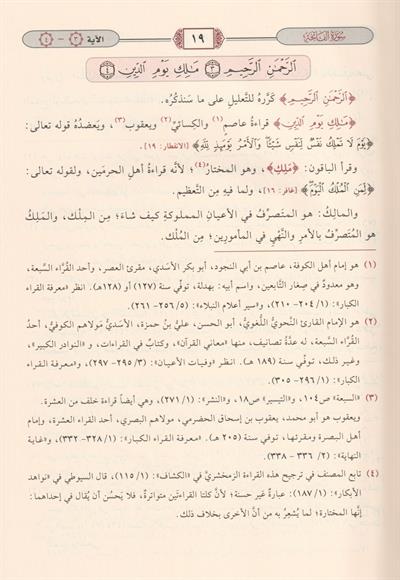 سورة الفاتحة
١٩
الآية ٣ - ٤
الرَّحْمَنِ الرَّحِيمِ ٣ مَالِكِ يَوْمِ الدِّينِ ٤
﴿الرَّحْمَنِ الرَّحِيمِ﴾ كَرَّرَهُ للتَّعليلِ على ما سَنذكُرُه.
﴿مَالِكِ يَوْمِ الدِّينِ﴾ قراءةُ عاصمٍ(١) والكِسائيِّ(٢) ويعقوب(٣)، ويَعضدُهُ قوله تعالى:
﴿يَوْمَ لَا تَمْلِكُ نَفْسٌ لِنَفْسٍ شَيْئًا وَالْأَمْرُ يَوْمَئِذٍ لِلَّهِ﴾ [الانفطار: ١٩].
وقرأ الباقون: ﴿مَلِكِ﴾، وهو المختارُ(٤)؛ لأنَّه قراءةُ أهلِ الحرمَين، ولقوله تعالى:
﴿لِمَنِ الْمُلْكُ الْيَوْمَ﴾ [غافر: ١٦]، ولما فيهِ مِن التَّعظيم.
والمالِكُ: هو المتصرِّفُ في الأعيانِ المملوكةِ كيف شاءَ؛ مِن المِلْك، والمَلِكُ
هو المُتصرِّفُ بالأمرِ والنَّهْيِ في المأمورين؛ مِن المُلْك.
(١) هو إمام أهل الكوفة، عاصم بن أبي النجود، أبو بكر الأسدي، مقرئ العصر، وأحد القُرَّاء السَّبعة،
وهو معدودٌ في صِغار التَّابعين، واسم أبيه: بهدلة، توفِّي سنة (١٢٧) أو (١٢٨هـ). انظر «معرفة القراء
الكبار»: (١/ ٢٠٤- ٢١٠)، و«سير أعلام النبلاء»: (٥/ ٢٥٦- ٢٦١).
(٢) هو الإمام القارئ النَّحويُّ اللُّغويُّ، أبو الحسن، عليُّ بنُ حمزة، الأسَديُّ مَولاهم الكوفيُّ، أحدُ
القُرَّاء السَّبعة، له عدَّةُ تصانيف، منها «معاني القرآن»، وكتابٌ في القراءات، و«النوادر الكبير»،
وغير ذلك، توفِّي سنة (١٨٩ هـ). انظر «وفيات الأعيان»: (٣/ ٢٩٥- ٢٩٧)، و«معرفة القراء
الكبار»: (١/ ٢٩٦- ٣٠٥).
(٣) «السبعة» ص١٠٤، و«التيسير» ص١٨، و«النشر»: (١/ ٢٧١)، وهي أيضاً قراءة خلف من العشرة.
ويعقوب هو أبو محمد، يعقوب بن إسحاق الحضرمي، مولاهم البصري، أحد القراء العشرة، وإمام
أهل البصرة ومقرئها، توفي سنة (٢٠٥ هـ). «معرفة القراء الكبار»: (١/ ٣٢٨- ٣٣٢)، و«غاية
النهاية»: (٢/ ٣٣٦ - ٣٣٨).
(٤) تابع المصنف في ترجيح هذه القراءة الزمخشريَّ في «الكشاف»: (١/ ١١٥)، قال السيوطي في «نواهد
الأبكار»: (١/ ١٨٧): عبارةٌ غير حسنة؛ لأنَّ كلتا القراءتَين متواترةٌ، فلا يَحسُن أن يُقال في إحداهما:
إنَّها المختارة؛ لما يُشعِرُ به من أنَّ الأخرى بخلاف ذلك.